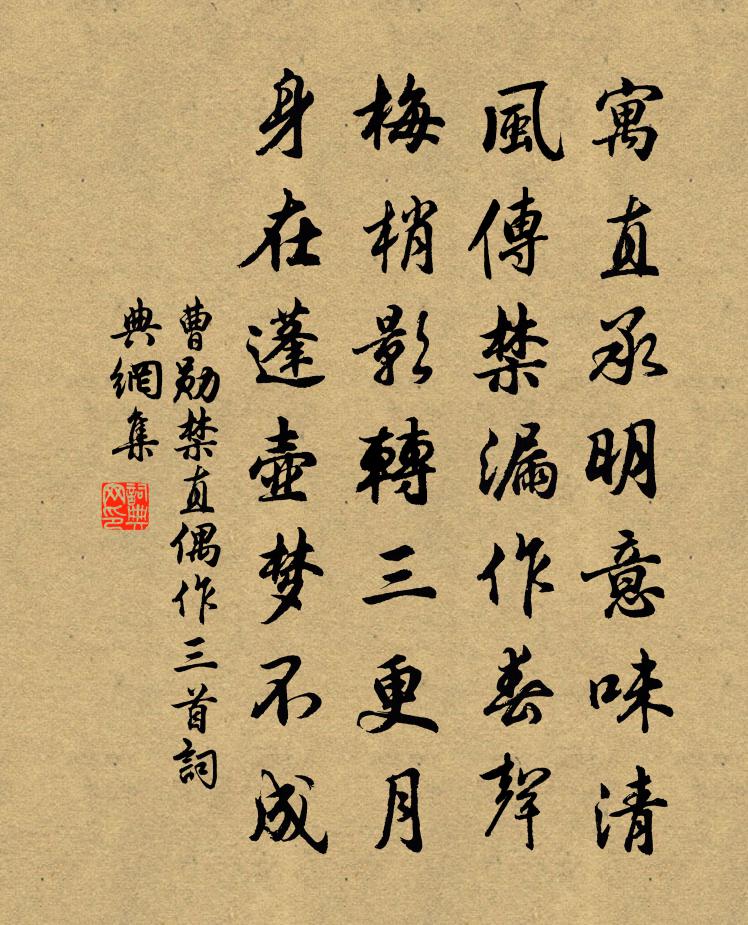 寓直承明意味清
風傳禁漏作春聲
梅梢影轉三更月
身在蓬壺梦不成
曹勛禁直偶作三首詞
典網集
詞典
网印